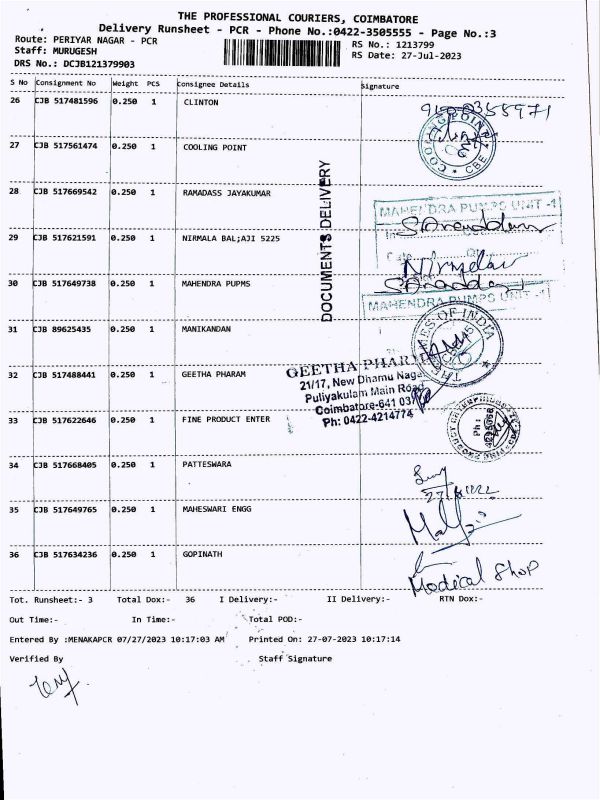 THE PROFESSIONAL COURIERS, COIMBATORE
Delivery Runsheet - PCR - Phone No.:0422-3505555 - Page No.:3
Route: PERIYAR NAGAR - PCR RS No.: 1213799
Staff: MURUGESH RS Date: 27-Jul-2023
DRS No.: DCJB121379903
S No Consignment No Weight PCS Consignee Details Signature
26 CJB 517481596 0.250 1 CLINTON
27 CJB 517561474 0.250 1 COOLING POINT
COOLING POINT CBE
28 CJB 517669542 0.250 1 RAMADASS JAYAKUMAR
DOCUMENTS DELIVERY
MAHENDRA PUMPS UNIT -1
29 CJB 517621591 0.250 1 NIRMALA BAL;AJI 5225
Nirmala
30 CJB 517649738 0.250 1 MAHENDRA PUPMS
MAHENDRA PUMPS UNIT -1
31 CJB 89625435 0.250 1 MANIKANDAN
THE TIMES OF INDIA
32 CJB 517488441 0.250 1 GEETHA PHARAM
GEETHA PHARM
21/17, New Dhamu Nagar
Puliyakulam Main Road
Coimbatore-641 037
Ph: 0422-4214774
33 CJB 517622646 0.250 1 FINE PRODUCT ENTER
34 CJB 517668405 0.250 1 PATTESWARA
35 CJB 517649765 0.250 1 MAHESWARI ENGG
36 CJB 517634236 0.250 1 GOPINATH
Medical Shop
Tot. Runsheet:- 3 Total Dox:- 36 I Delivery:- II Delivery:- RTN Dox:-
Out Time:- In Time:- Total POD:-
Entered By :MENAKAPCR 07/27/2023 10:17:03 AM Printed On: 27-07-2023 10:17:14
Verified By Staff Signature